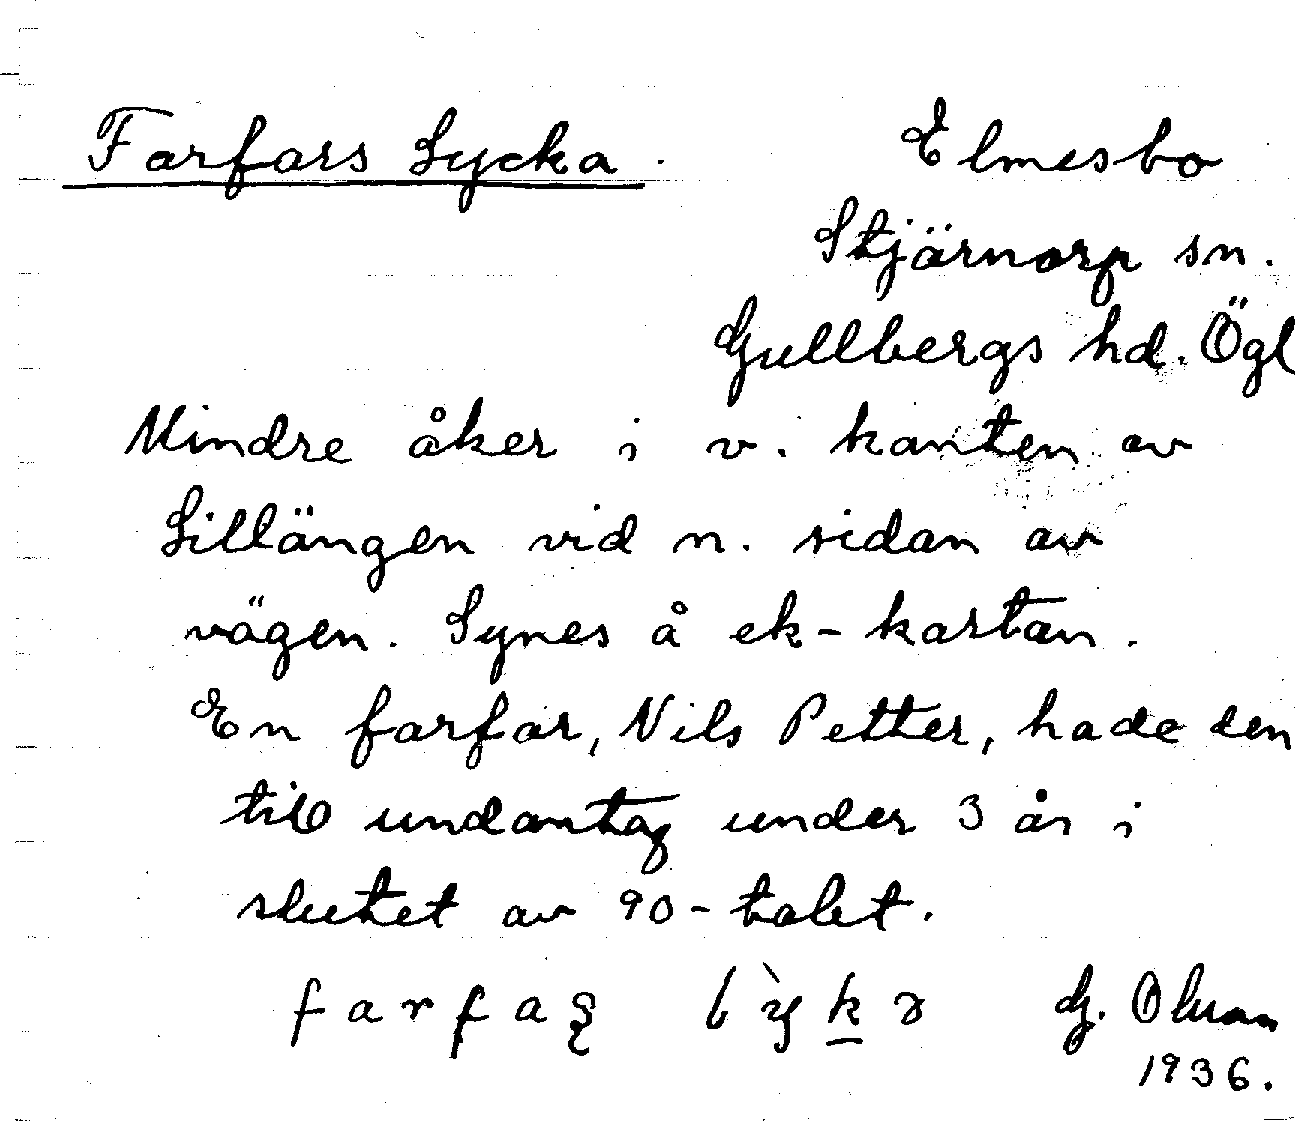 Farfars Lycka.
Elmesbo
Stjärnorp sn.
Gullbergs hd. Ögl
Mindre åker i v. kanten av
Lillängen vid n. sidan av
vägen. Synes å ek-kartan.
En farfar, Nils Petter, hade den
till undantag under 3 år i
slutet av 90-talet.
G.
1936.